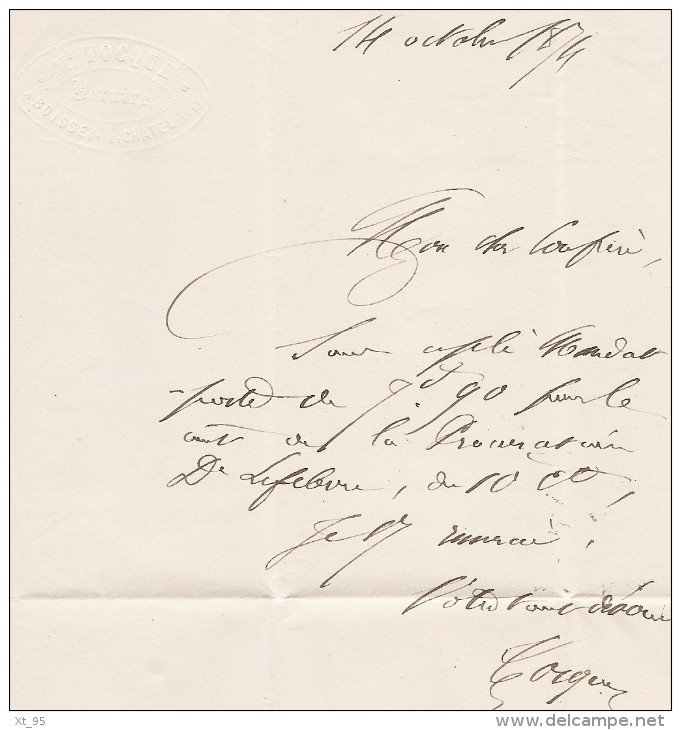 Me TOCQUE
Notaire
A BUISSE
14 octobre 1874
Mon cher Confrère,
Sous ce pli Mandat
poste de 7f 90 pour le
coût de la Procuration
De Lefebvre, du 10 Ct,
Je vs remercie,
Votre tout dévoué
Tocque
Xt_95
www.delcampe.net